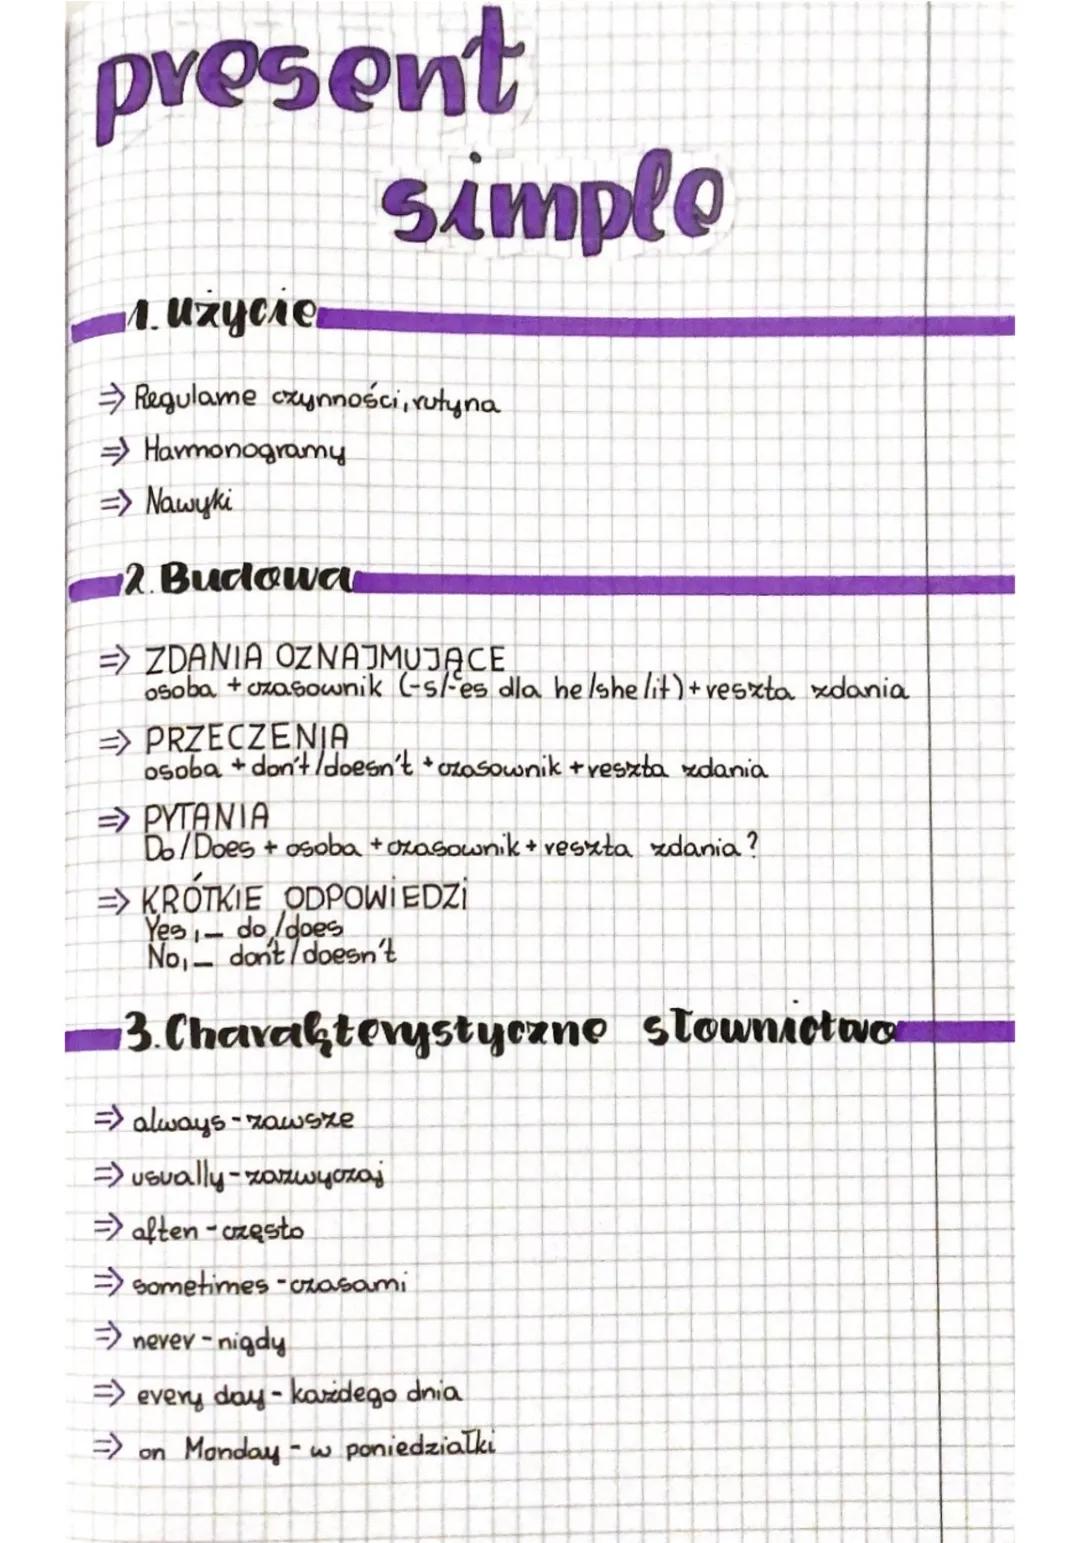 present
simple
1. Użycie
⇒ Regularne czynności, rutyna
⇒ Harmonogramy
⇒ Nawyki
2. Budowa
⇒ ZDANIA OZNAJMUJĄCE
osoba + czasownik (-s/-es dla he/she/it) + reszta zdania
⇒ PRZECZENIA
osoba + don't/doesn't + czasownik + reszta zdania
⇒ PYTANIA
Do/Does + osoba + czasownik + reszta zdania?
⇒ KRÓTKIE ODPOWiEDZi
Yes, _ do/does
No, _ don't/doesn't
3. Charakterystyczne słownictwo
⇒ always - zawsze
⇒ usually - zazwyczaj
⇒ often - często
⇒ sometimes - czasami
⇒ never - nigdy
⇒ every day - każdego dnia
⇒ on Monday - w poniedziałki